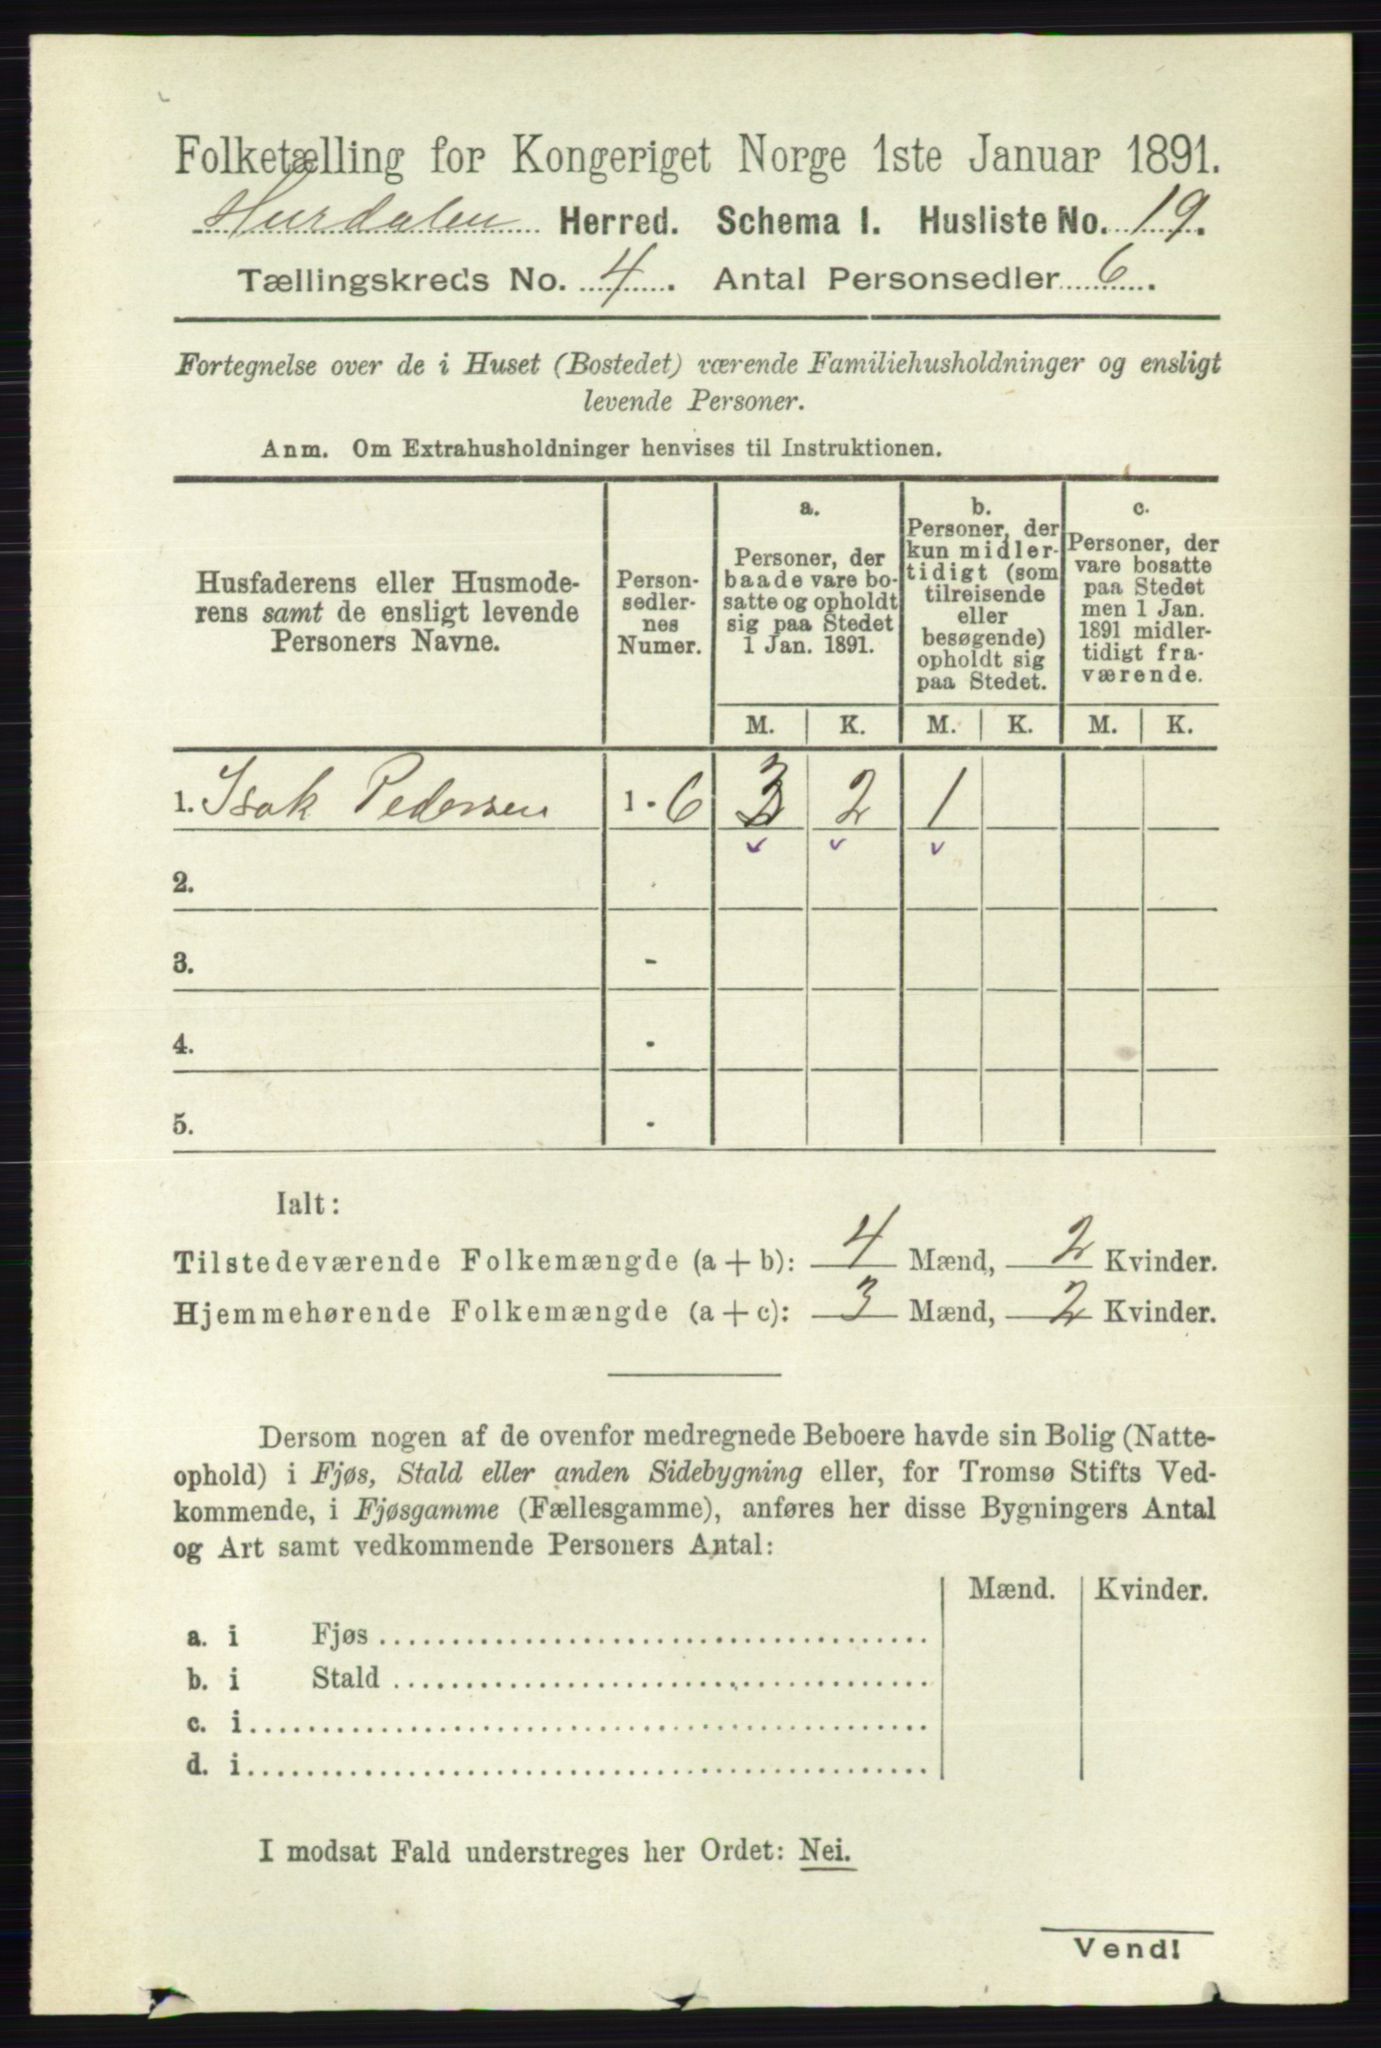 Folketælling for Kongeriget Norge 1ste Januar 1891.
Hurdalen Herred. Schema I. Husliste No. 19.
Tællingskreds No. 4. Antal Personsedler 6.
Fortegnelse over de i Huset (Bostedet) værende Familiehusholdninger og ensligt
levende Personer.
Anm. Om Extrahusholdninger henvises til Instruktionen.
Husfaderens eller Husmode-
rens samt de ensligt levende
Personers Navne.
Person-
sedler-
nes
Numer.
a.
Personer, der
baade vare bo-
satte og opholdt
sig paa Stedet
1 Jan. 1891.
b.
Personer, der
kun midler-
tidigt (som
tilreisende
eller
besøgende)
opholdt sig
paa Stedet.
c.
Personer, der
vare bosatte
paa Stedet
men 1 Jan.
1891 midler-
tidigt fra-
værende.
M. K. M. K. M. K.
1. Isak Pedersen 1 - 6 3 2 1
2.
3. -
4. -
5. -
Ialt:
Tilstedeværende Folkemængde (a + b): 4 Mænd, 2 Kvinder.
Hjemmehørende Folkemængde (a + c): 3 Mænd, 2 Kvinder.
Dersom nogen af de ovenfor medregnede Beboere havde sin Bolig (Natte-
ophold) i Fjøs, Stald eller anden Sidebygning eller, for Tromsø Stifts Ved-
kommende, i Fjøsgamme (Fællesgamme), anføres her disse Bygningers Antal
og Art samt vedkommende Personers Antal:
Mænd. Kvinder.
a. i Fjøs
b. i Stald
c. i
d. i
I modsat Fald understreges her Ordet: Nei.
Vend!